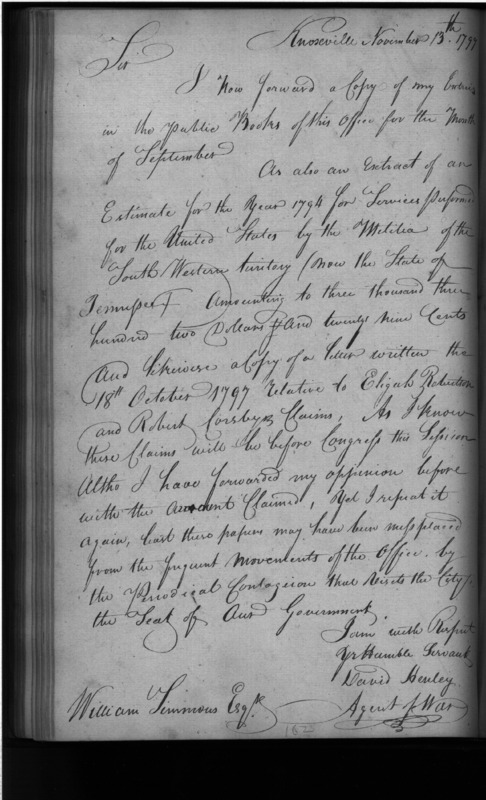 Knoxville November 13th. 1797
Sir
I Now forward a Copy of my Entries
in the public Books of this Office for the Month
of September
As also an Extract of an
Estimate for the Year 1794 for Services performed
for the United States by the Militia of the
South Western territory (now the State of
Tennessee) Amounting to three thousand three
hundred two Dollars And twenty nine Cents
And likewise a Copy of a letter written the
18th October 1797 relative to Elijah Robertson
and Robert Corsbys Claims, As I know
these Claims will be before Congress this Session
Altho I have forwarded my oppinion before
with the Amount Claimed, Yet I repeat it
again, least those papers may have been missplaced
from the frequent Movements of the Office. by
the Periodical Contageion that Visits the City,
the Seat of Our Government
I am with Respect
Yr Humble Servant
David Henley
Agent of War
William Simmons Esqr.